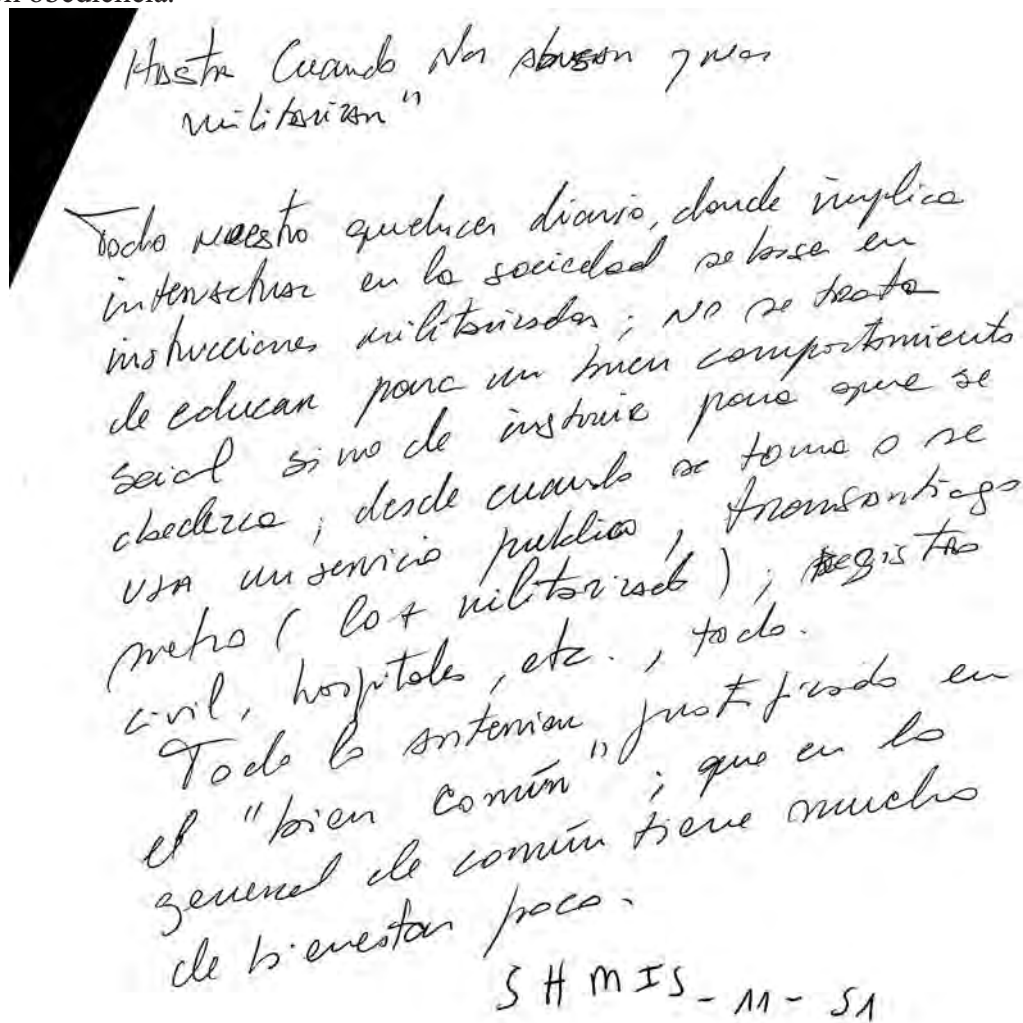 en obediencia.
Hasta Cuando Nos abusan y nos
militarizan"
Todo nuestro quehacer diario, donde implica
interactuar en la sociedad se basa en
instrucciones militarizadas; No se trata
de educar para un buen comportamiento
social sino de instruir para que se
obedezca, desde cuando se toma o se
usa un servicio publico, transantiago
metro (lo + militarizado), registro
civil, hospitales, etc., todo.
Todo lo anterior justificado en
el "bien común"; que en lo
general de común tiene mucho
de bienestar poco.
SHMIS-11-51